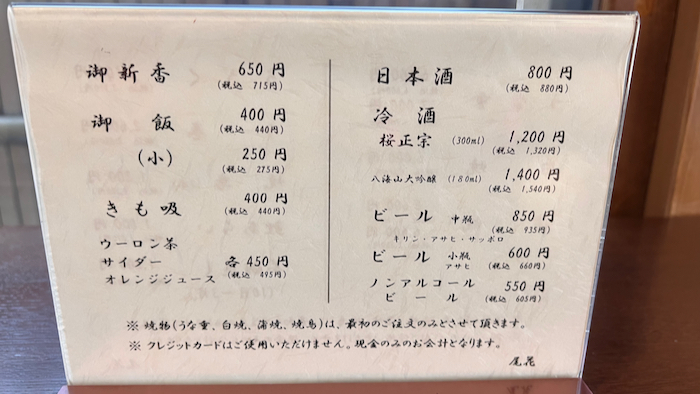 御新香 650円
(税込 715円)
御飯 400円
(税込 440円)
(小) 250円
(税込 275円)
きも吸 400円
(税込 440円)
ウーロン茶
サイダー 各450円
(税込 495円)
オレンジジュース
日本酒 800円
(税込 880円)
冷酒
桜正宗 (300ml) 1,200円
(税込 1,320円)
八海山大吟醸 (180ml) 1,400円
(税込 1,540円)
ビール 中瓶 850円
(税込 935円)
キリン・アサヒ・サッポロ
ビール 小瓶 600円
アサヒ (税込 660円)
ノンアルコール 550円
ビール (税込 605円)
※ 焼物(うな重、白焼、蒲焼、焼鳥)は、最初のご注文のみとさせて頂きます。
※ クレジットカードはご使用いただけません。現金のみのお会計となります。
尾花